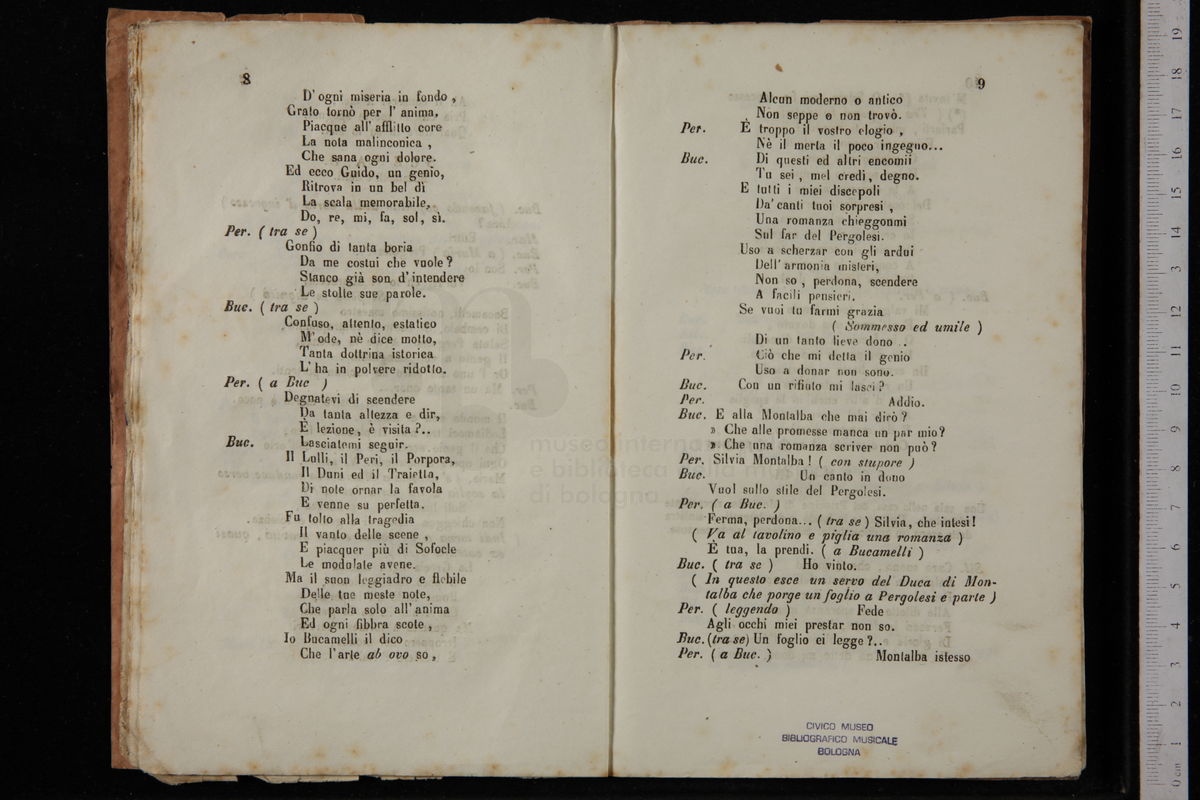 8
D'ogni miseria in fondo,
Grato tornò per l'anima,
Piacque all'afflitto core
La nota malinconica,
Che sana ogni dolore.
Ed ecco Guido, un genio,
Ritrova in un bel dì
La scala memorabile,
Do, re, mi, fa, sol, sì.
Per. (tra se)
Gonfio di tanta boria
Da me costui che vuole?
Stanco già son d'intendere
Le stolte sue parole.
Buc. (tra se)
Confuso, attento, estatico
M'ode, nè dice motto,
Tanta dottrina istorica
L'ha in polvere ridotto.
Per. (a Buc)
Degnatevi di scendere
Da tanta altezza e dir,
È lezione, è visita?..
Buc. Lasciatemi seguir.
Il Lulli, il Peri, il Porpora,
Il Duni ed il Traietta,
Di note ornar la favola
E venne su perfetta.
Fu tolto alla tragedia
Il vanto delle scene,
E piacquer più di Sofocle
Le modulate avene.
Ma il suon leggiadro e flebile
Delle tue meste note,
Che parla solo all'anima
Ed ogni fibbra scote,
Io Bucamelli il dico
Che l'arte ab ovo so,
9
Alcun moderno o antico
Non seppe e non trovò.
Per. È troppo il vostro elogio,
Nè il merta il poco ingegno...
Buc. Di questi ed altri encomii
Tu sei, mel credi, degno.
E tutti i miei discepoli
Da'canti tuoi sorpresi,
Una romanza chieggonmi
Sul far del Pergolesi.
Uso a scherzar con gli ardui
Dell'armonia misteri,
Non so, perdona, scendere
A facili pensieri.
Se vuoi tu farmi grazia
(Sommesso ed umile)
Di un tanto lieve dono.
Per. Ciò che mi detta il genio
Uso a donar non sono.
Buc. Con un rifiuto mi lasci?
Per. Addio.
Buc. E alla Montalba che mai dirò?
» Che alle promesse manca un par mio?
» Che una romanza scriver non può?
Per. Silvia Montalba! (con stupore)
Buc. Un canto in dono
Vuol sullo stile del Pergolesi.
Per. (a Buc.)
Ferma, perdona... (tra se) Silvia, che intesi!
(Va al tavolino e piglia una romanza)
È tua, la prendi. (a Bucamelli)
Buc. (tra se) Ho vinto.
(In questo esce un servo del Duca di Mon-
talba che porge un foglio a Pergolesi e parte)
Per. (leggendo) Fede
Agli occhi miei prestar non so.
Buc. (tra se) Un foglio ei legge?..
Per. (a Buc.) Montalba istesso
CIVICO MUSEO
BIBLIOGRAFICO MUSICALE
BOLOGNA